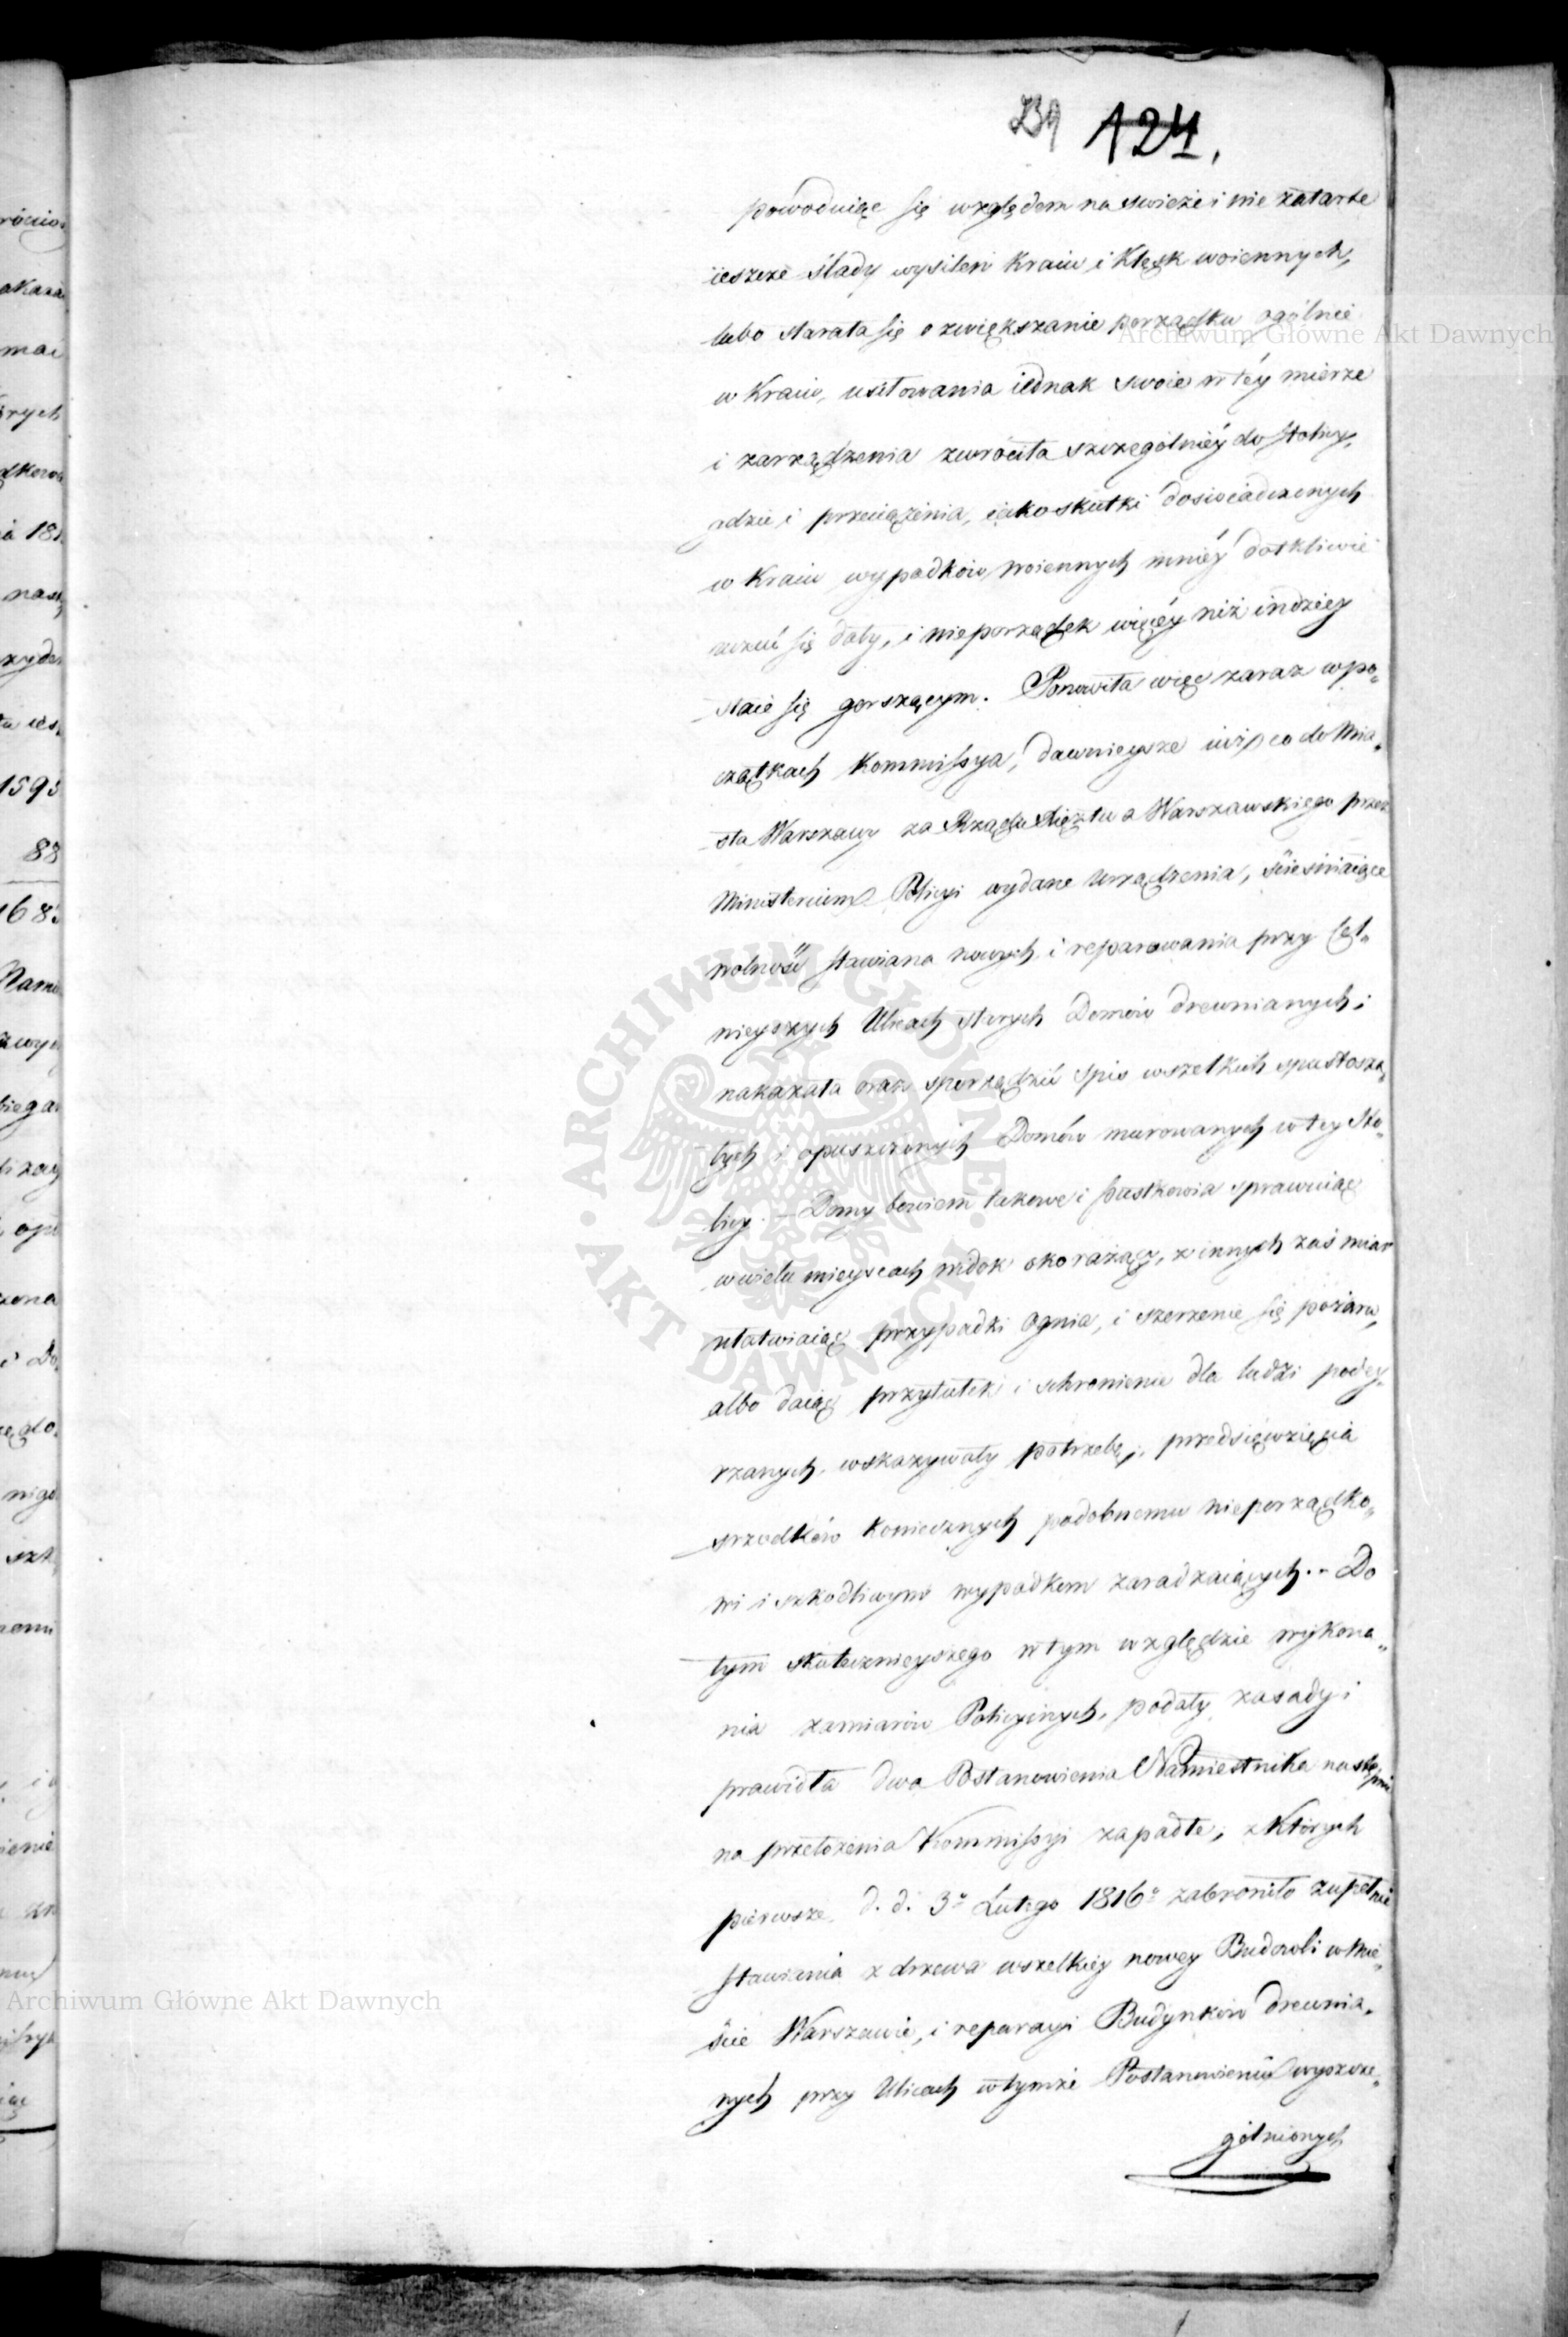 124.
powoduiąc się względem na swieże i nie zatarte
ieszcze ślady wysileń Kraiu i Klęsk woiennych,
lubo starała się o zwiększanie porządku ogólnie
w Kraiu, usiłowania iednak swoie w téy mierze
i zarządzenia zwróciła szczególniéy do Stolicy,
gdzie i przeciążenia, iako skutki doświadczonych
w Kraiu wypadków woiennych mniéy dotkliwie
uczuć się dały, i nieporządek więcéy niż indziey
staie się gorszącym. Ponowiła więc zaraz w po„
czątkach Kommissya, dawnieysze iuż co do Mia„
sta Warszawy za Rządu Xięztwa Warszawskiego przez
Ministerium Policyi wydane urządzenia, ścieśniaiące
wolność stawiana nowych i reparowania przy cel„
nieyszych Ulicach starych Domów drewnianych i
nakazała oraz sporządzić spis wszelkich spustosza„
łych i opuszczonych Domów murowanych w tey Sto„
licy. – Domy bowiem takowe i pustkowia sprawuiąc
w wielu mieyscach widok okorażący, z innych zaś miar
ułatwiaiąc przypadki ognia, i szerzenie się pożaru,
albo daiąc przytułek i schronienie dla ludzi podey„
rzanych, wskazywały potrzebę, przedsięwzięcia
srzodków koniecznych podobnemu nieporządko„
wi i szkodliwym wypadkom zaradzaiących. – Do
tym skutecznieyszego w tym względzie wykona„
nia zamiarów Policyinych, podały zasady i
prawidła dwa Postanowienia Namiestnika następnie
na przełożenia Kommissyi zapadłe, z których
pierwsze d. d. 3º Lutego 1816º zabroniło zupełnie
stawiania z drzewa wszelkiéy nowey Budowli w Mie„
ście Warszawie, i reparacyi Budynków drewnia„
nych przy Ulicach w tymże Postanowieniu wyszcze„
gólnionych
Archiwum Główne Akt Dawnych
ARCHIWUM GŁÓWNE AKT DAWNYCH
Archiwum Główne Akt Dawnych